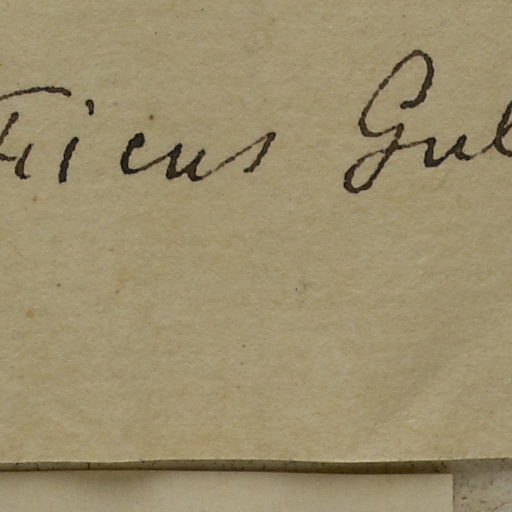 Ficus Gul